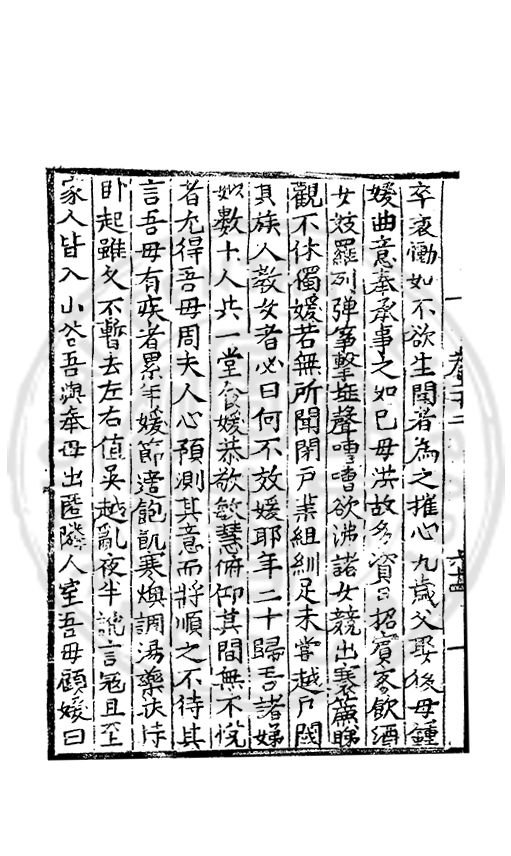 卒哀慟如不欲生聞者為之摧心九歲父娶後母鍾
媛曲意奉承事之如己母洪故多資日招賓客飲酒
女妓羅列彈箏擊筑聲嘈嘈欲沸諸女競出褰簾睇
觀不休獨媛若無所聞閉戶業組紃足未嘗越戶閾
其族人教女者必曰何不效媛耶年二十歸吾諸娣
姒數十人共一堂食媛恭敬敏慧俯仰其間無不悅
者尤得吾母周夫人心預測其意而將順之不待其
言吾母有疾者累年媛節適飽飢寒燠調湯藥扶侍
臥起雖久不暫去左右值吳越亂夜半訛言寇且至
家人皆入山谷吾與奉母出匿隣人室吾母顧媛曰